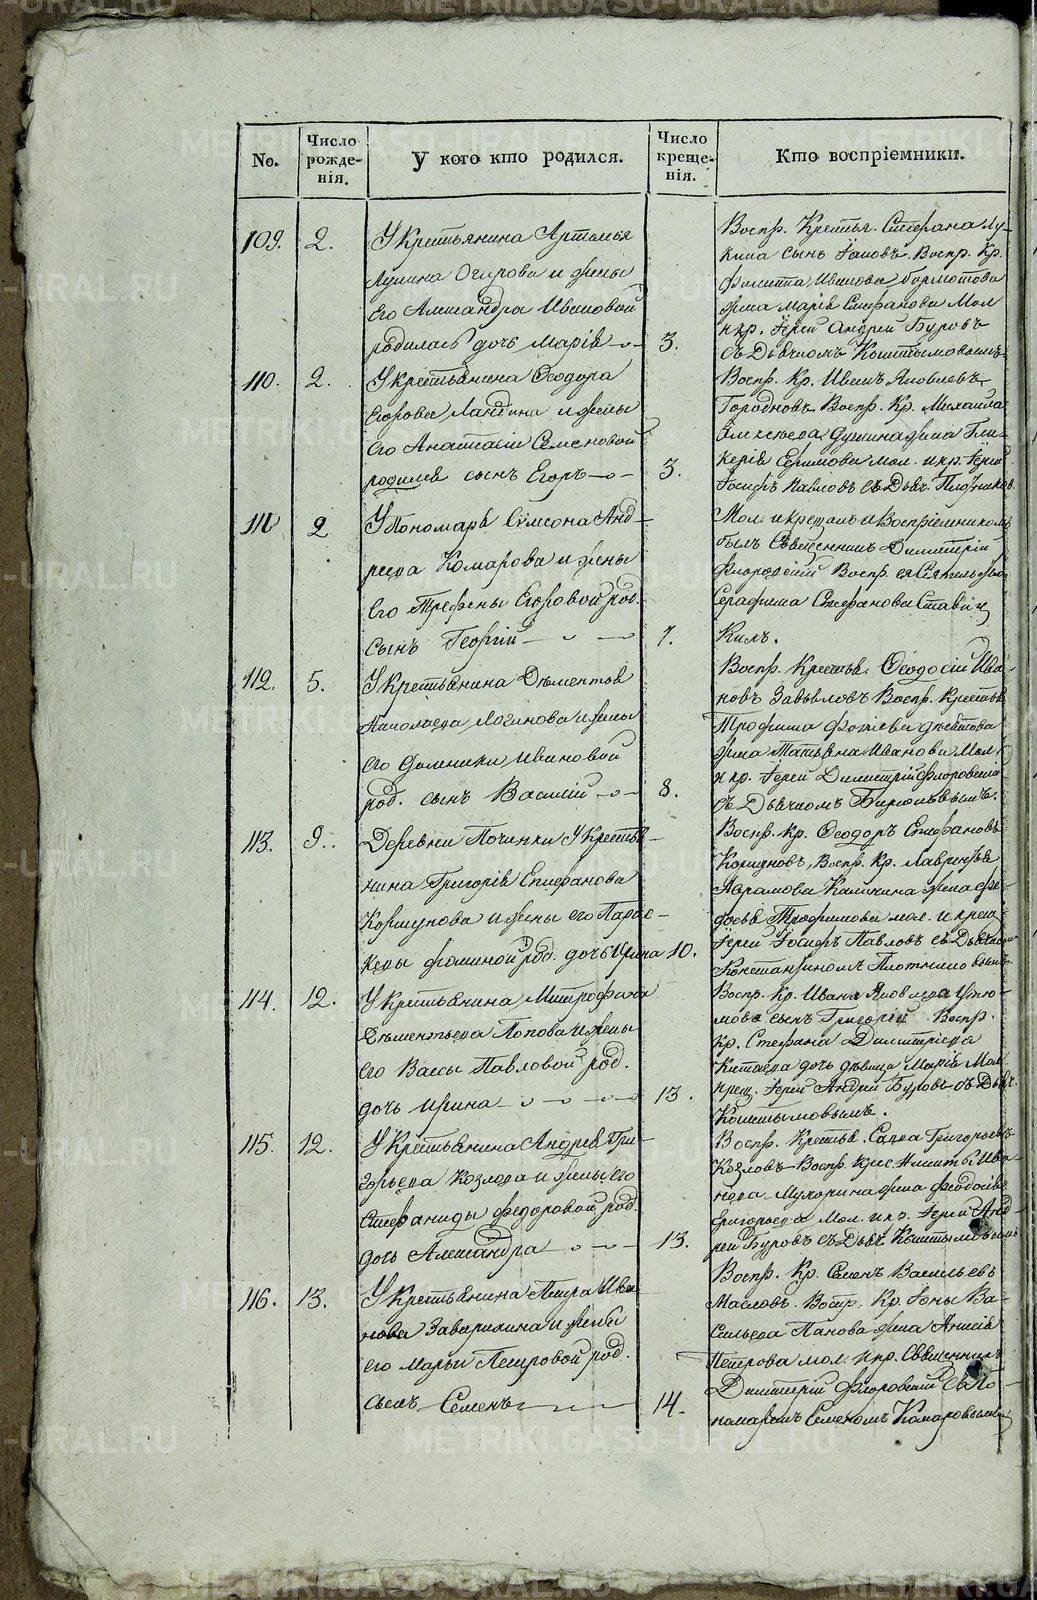 No.
Число рожде-нія.
У кого кто родился.
Число креще-нія.
Кто воспріемники.
109.
2.
У Крестьянина Артемья
Лукина Огирова и жены
его Александры Ивановой
родилась дочь Марія
3.
Воспр. Крестья. Стефана Лу-
кина сынъ Іаковъ. Воспр. Кр.
Филиппа Иванова
жена Марія Стефанова Мол
и кр. Іерей Андрей Буровъ
съ Дьячкомъ Коштымовымъ
110.
2.
У крестьянина Ѳеодора
Егорова Лапдина и жены
его Анастасіи Семеновой
родился сынъ Егоръ
3.
Воспр. Кр. Иванъ Яковлевъ
Городновъ Воспр. Кр. Михаила
Алексѣева Душина жена Гли-
керія Ефимова мол. и кр. Іерей
Іосифъ Павловъ съ Дьяч. Плотников
111
2
У Пономаря Сѵмеона Анд-
реева Комарова и жены
его Трефены Егоровой род.
сынъ Георгій
7.
Мол. и крещалъ и Воспріемникомъ
былъ Священникъ Димитрій
Флоровскій Воспр.
Серафима Стефанова Ставіц
кихъ.
112.
5.
У Крестьянина Дѣментья
Николаева Логинова и жены
его Домники Ивановой
род. сынъ Василій
8.
Воспр. Крестья. Ѳеодосій Ива-
новъ Завьяловъ Воспр. Крестья
Трофима Фотіева
жена Татьяна Иванова Мол.
и кр. Іерей Димитрій Флоровскій
съ Дьячкомъ Бирюковымъ.
113.
9.
Деревни Починки У Крестья-
нина Григорія Епифанова
Коршунова и жены его Парас-
кевы Фоминой род. дочь Ирина
10.
Воспр. Кр. Ѳеодоръ Епифановъ
Коршуновъ, Воспр. Кр. Лаврентья
Абрамова Калинина жена Ѳе-
досья Трофимова мол. и крещ
Іерей Іосифъ Павловъ съ Дьячкомъ
Константиномъ Плотниковымъ
114.
12.
У Крестьянина Митрофана
Дѣментьева Попова и жены
его Вассы Павловой род.
дочь Ирина
13.
Воспр. Кр. Ивана Яковлева Утю-
мова сынъ Григорій Воспр.
кр. Стефана Димитріева
Китаева дочь дѣвица Марія Мол
крещ. Іерей Андрей Буровъ съ Дьяч.
Коштымовымъ.
115.
12.
У Крестьянина Андрея Гри-
горьева Козлова и жены его
Стефаниды Федоровой род.
дочь Александра
13.
Воспр. Крестья. Савва Григорьевъ
Козловъ Воспр. Крес. Никиты Ива
нова Мухорина жена Феодосія
Григорьева Мол. и кр. Іерей Анд-
рей Буровъ съ Дьяч Коштымовымъ
116.
13.
У Крестьянина Петра Ива
нова Заварихина и жены
его Марьи Петровой род.
сынъ Семенъ
14.
Воспр. Кр. Семенъ Васильевъ
Масловъ. Воспр. Кр. Іоны Ва-
сильева Панова жена Анисія
Петрова мол. и кр. Священникъ
Димитрій Флоровскій съ По-
номаремъ Семеномъ Комаровымъ